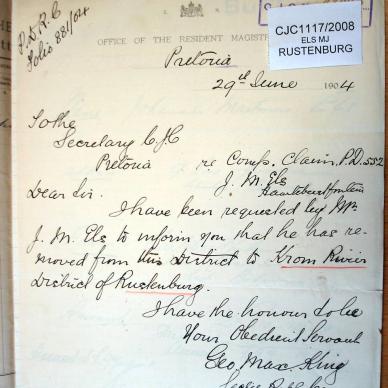 P.D.R.C
Folio 881/04
OFFICE OF THE RESIDENT MAGISTR
CJC1117/2008
ELS MJ
RUSTENBURG
Pretoria
29th June 1904
To the
Secretary C.J.C
Pretoria
re Comp. Claim P.D. 552
J. M. Els
Hartebeestfontein
Dear Sir.
I have been requested by Mr
J. M. Els to inform you that he has re-
moved from this District to Krom Rivier
District of Rustenburg.
I have the honour to be
Your Obedient Servant
Geo. Max King